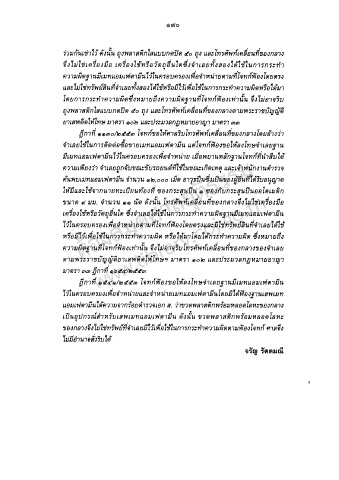 ๑๙๐
ร่วมกันเข้าไว้ ดังนั้น ถุงพลาสติกใสแบบกดปิด ๕๐ ถุง และโทรศัพท์เคลื่อนที่ของกลาง
จึงไม่ใช่เครื่องมือ เครื่องใช้หรือวัตถุอื่นใดซึ่งจำเลยทั้งสองได้ใช้ในการกระทำ
ความผิดฐานมีเมทแอมเฟตามีนไว้ในครอบครองเพื่อจำหน่ายตามที่โจทก์ฟ้องโดยตรง
และไม่ใช่ทรัพย์สินที่จำเลยทั้งสองได้ใช้หรือมีไว้เพื่อใช้ในการกระทำความผิดหรือได้มา
โดยการกระทำความผิดซึ่งหมายถึงความผิดฐานที่โจทก์ฟ้องเท่านั้น จึงไม่อาจริบ
ถุงพลาสติกใสแบบกดปิด ๕๐ ถุง และโทรศัพท์เคลื่อนที่ของกลางตามพระราชบัญญัติ
ยาเสพติดให้โทษ มาตรา ๑๐๒ และประมวลกฎหมายอาญา มาตรา ๓๓
โจทก์ขอให้ศาลริบโทรศัพท์เคลื่อนที่ของกลางโดยอ้างว่า
จำเลยใช้ในการติดต่อซื้อขายเมทแอมเฟตามีน แต่โจทก์ฟ้องขอให้ลงโทษจำเลยฐาน
มีเมทแอมเฟตามีนไว้ในครอบครองเพื่อจำหน่าย เมื่อพยานหลักฐานโจทก์ที่นำสืบได้
ความเพียงว่า จำเลยถูกจับขณะขับรถยนต์ที่ใช้ในขณะเกิดเหตุ และเจ้าพนักงานตำรวจ
ค้นพบเมทแอมเฟตามีน จำนวน ๑๒,๐๐๐ เม็ด อาวุธปืนซึ่งเป็นของผู้อื่นที่ได้รับอนุญาต
ให้มีและใช้จากนายทะเบียนท้องที่ ซองกระสุนปืน ๑ ซองกับกระสุนปืนออโตเมติก
ขนาด ๙ มม. จำนวน ๑๑ นัด ดังนั้น โทรศัพท์เคลื่อนที่ของกลางจึงไม่ใช่เครื่องมือ
เครื่องใช้หรือวัตถุอื่นใด ซึ่งจำเลยได้ใช้ในการกระทำความผิดฐานมีเมทแอมเฟตามีน
ไว้ในครอบครองเพื่อจำหน่ายตามที่โจทก์ฟ้องโดยตรงและมิใช่ทรัพย์สินที่จำเลยได้ใช้
หรือมีไว้เพื่อใช้ในการกระทำความผิด หรือได้มาโดยได้กระทำความผิด ซึ่งหมายถึง
ความผิดฐานที่โจทก์ฟ้องเท่านั้น จึงไม่อาจริบโทรศัพท์เคลื่อนที่ของกลางของจำเลย
ตามพระราชบัญญัติยาเสพติดให้โทษฯ มาตรา ๑๐๒ และประมวลกฎหมายอาญา
มาตรา ๓๓
โจทก์ฟ้องขอให้ลงโทษจำเลยฐานมีเมทแอมเฟตามีน
ไว้ในครอบครองเพื่อจำหน่ายและจำหน่ายเมทแอมเฟตามีนโดยมิได้ฟ้องฐานเสพเมท
แอมเฟตามีนได้ความจากร้อยตำรวจเอก ส. ว่าขวดพลาสติกพร้อมหลอดโลหะของกลาง
เป็นอุปกรณ์สำหรับเสพเมทแอมเฟตามีน ดังนั้น ขวดพลาสติกพร้อมหลอดโลหะ
ของกลางจึงไม่ใช่ทรัพย์ที่จำเลยมีไว้เพื่อใช้ในการกระทำความผิดตามฟ้องโจทก์ ศาลจึง
ไม่มีอำนาจสั่งริบได้
จรัญ รัตตมณี